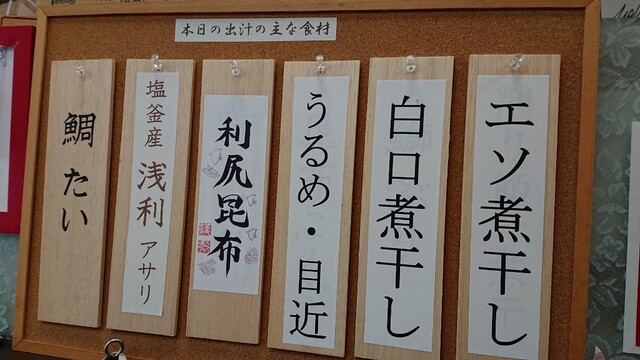 本日の出汁の主な食材
エソ煮干し
白口煮干し
うるめ・目近
利尻昆布
塩釜産 浅利 アサリ
鯛 たい